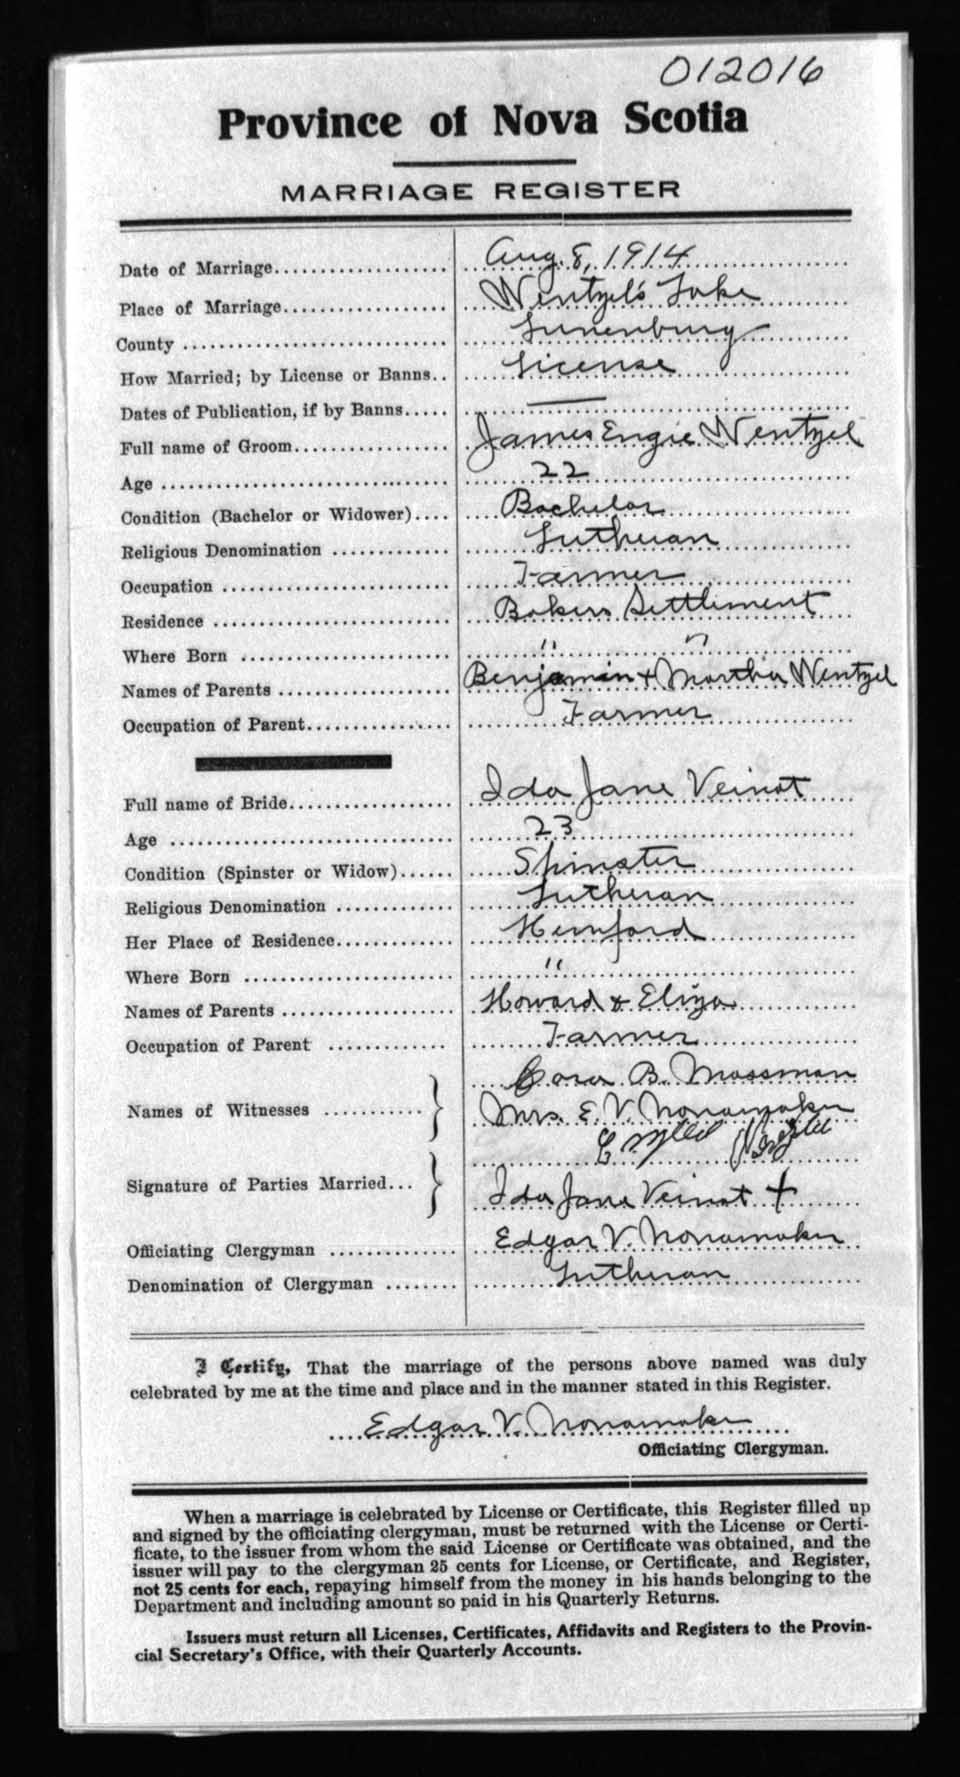 012016
Province of Nova Scotia
MARRIAGE REGISTER
Date of Marriage.................. Aug. 8, 1914
Place of Marriage.................. Wentzel's Lake
County .............................. Lunenburg
How Married; by License or Banns.. License
Dates of Publication, if by Banns..... —
Full name of Groom................. James Engie Wentzel
Age ............................... 22
Condition (Bachelor or Widower).... Bachelor
Religious Denomination ............. Lutheran
Occupation ......................... Farmer
Residence .......................... Bakers Settlement
Where Born ........................ " "
Names of Parents .................. Benjamin + Martha Wentzel
Occupation of Parent................ Farmer
Full name of Bride.................. Ida Jane Veinot
Age ................................ 23
Condition (Spinster or Widow)...... Spinster
Religious Denomination ............. Lutheran
Her Place of Residence............. Hemford
Where Born ........................ "
Names of Parents .................. Howard & Eliza
Occupation of Parent .............. Farmer
Cora B. Mossman
Names of Witnesses ............ } Mrs. E. V. Nonamaker
Signature of Parties Married... }
Ida Jane Veinot +
Officiating Clergyman .............. Edgar V. Nonamaker
Denomination of Clergyman ........ Lutheran
I Certify, That the marriage of the persons above named was duly
celebrated by me at the time and place and in the manner stated in this Register.
Edgar V. Nonamaker
Officiating Clergyman.
When a marriage is celebrated by License or Certificate, this Register filled up
and signed by the officiating clergyman, must be returned with the License or Certi-
ficate, to the issuer from whom the said License or Certificate was obtained, and the
issuer will pay to the clergyman 25 cents for License, or Certificate, and Register,
not 25 cents for each, repaying himself from the money in his hands belonging to the
Department and including amount so paid in his Quarterly Returns.
Issuers must return all Licenses, Certificates, Affidavits and Registers to the Provin-
cial Secretary's Office, with their Quarterly Accounts.